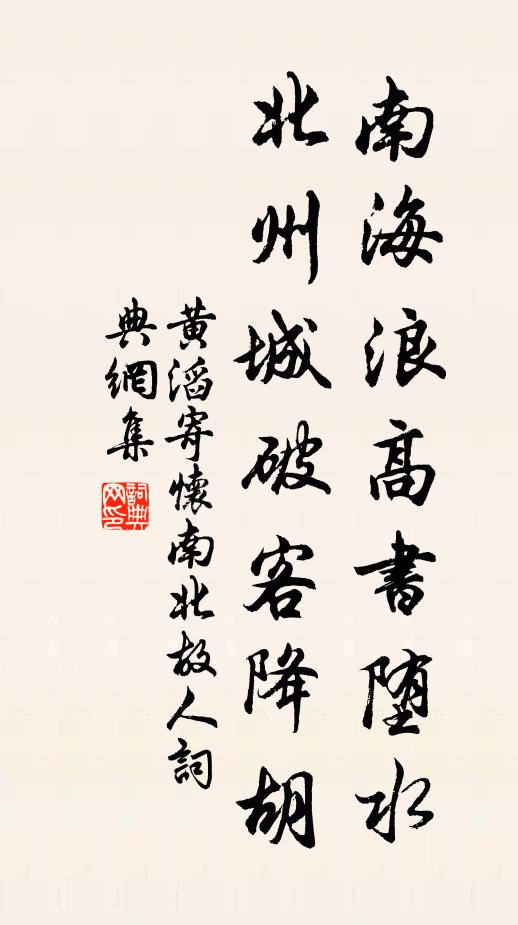 南海浪高書墮水
北州城破客降胡
黃滔寄懷南北故人詞
典網集
詞典
网印